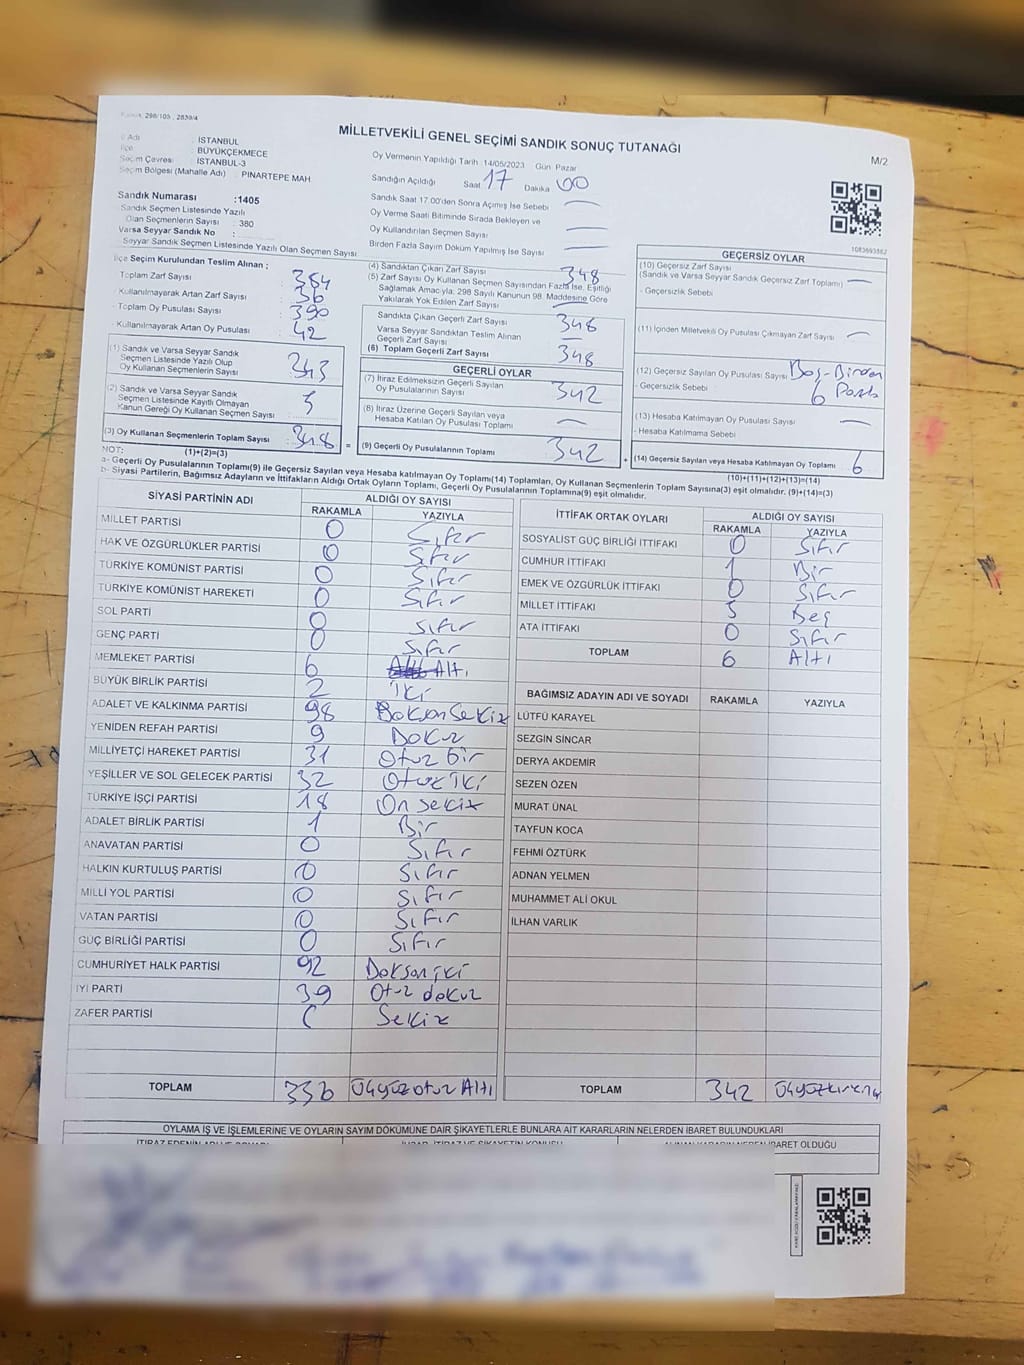 298/105 , 2839/4
MİLLETVEKİLİ GENEL SEÇİMİ SANDIK SONUÇ TUTANAĞI
M/2
İl Adı : İSTANBUL
İlçe : BÜYÜKÇEKMECE
Seçim Çevresi : İSTANBUL-3
Seçim Bölgesi (Mahalle Adı) : PINARTEPE MAH
Sandık Numarası :1405
Sandık Seçmen Listesinde Yazılı
Olan Seçmenlerin Sayısı : 380
Varsa Seyyar Sandık No :
Seyyar Sandık Seçmen Listesinde Yazılı Olan Seçmen Sayısı
Oy Vermenin Yapıldığı Tarih :14/05/2023 Gün Pazar
Sandığın Açıldığı Saat 17 Dakika 00
Sandık Saat 17.00'den Sonra Açımış İse Sebebi —
Oy Verme Saati Bitiminde Sırada Bekleyen ve
Oy Kullandırılan Seçmen Sayısı —
Birden Fazla Sayım Döküm Yapılmış İse Sayısı —
1083693882
İlçe Seçim Kurulundan Teslim Alınan ;
Toplam Zarf Sayısı : 384
Kullanılmayarak Artan Zarf Sayısı : 36
Toplam Oy Pusulası Sayısı : 390
Kullanılmayarak Artan Oy Pusulası : 42
(1) Sandık ve Varsa Seyyar Sandık
Seçmen Listesinde Yazılı Olup
Oy Kullanan Seçmenlerin Sayısı : 343
(2) Sandık ve Varsa Seyyar Sandık
Seçmen Listesinde Kayıtlı Olmayan
Kanun Gereği Oy Kullanan Seçmen Sayısı : 5
(3) Oy Kullanan Seçmenlerin Toplam Sayısı : 348
(1)+(2)=(3)
(4) Sandıktan Çıkan Zarf Sayısı 348
(5) Zarf Sayısı Oy Kullanan Seçmen Sayısından Fazla İse, Eşitliği
Sağlamak Amacıyla; 298 Sayılı Kanunun 98. Maddesine Göre
Yakılarak Yok Edilen Zarf Sayısı —
Sandıkta Çıkan Geçerli Zarf Sayısı 348
Varsa Seyyar Sandıktan Teslim Alınan
Geçerli Zarf Sayısı —
(6) Toplam Geçerli Zarf Sayısı 348
GEÇERLİ OYLAR
(7) İtiraz Edilmeksizin Geçerli Sayılan
Oy Pusulalarının Sayısı 342
(8) İtiraz Üzerine Geçerli Sayılan veya
Hesaba Katılan Oy Pusulası Toplamı —
= (9) Geçerli Oy Pusulalarının Toplamı 342
GEÇERSİZ OYLAR
(10) Geçersiz Zarf Sayısı
(Sandık ve Varsa Seyyar Sandık Geçersiz Zarf Toplamı) —
- Geçersizlik Sebebi
(11) İçinden Milletvekili Oy Pusulası Çıkmayan Zarf Sayısı —
(12) Geçersiz Sayılan Oy Pusulası Sayısı
- Geçersizlik Sebebi : 6
(13) Hesaba Katılmayan Oy Pusulası Sayısı —
- Hesaba Katılmama Sebebi
+ (14) Geçersiz Sayılan veya Hesaba Katılmayan Oy Toplamı 6
(10)+(11)+(12)+(13)=(14)
NOT:
a- Geçerli Oy Pusulalarının Toplamı(9) ile Geçersiz Sayılan veya Hesaba katılmayan Oy Toplamı(14) Toplamları, Oy Kullanan Seçmenlerin Toplam Sayısına(3) eşit olmalıdır. (9)+(14)=(3)
b- Siyasi Partilerin, Bağımsız Adayların ve İttifakların Aldığı Ortak Oyların Toplamı, Geçerli Oy Pusulalarının Toplamına(9) eşit olmalıdır.
SİYASİ PARTİNİN ADI ALDIĞI OY SAYISI
RAKAMLA YAZIYLA
MİLLET PARTİSİ 0 Sıfır
HAK VE ÖZGÜRLÜKLER PARTİSİ 0 Sıfır
TÜRKİYE KOMÜNİST PARTİSİ 0 Sıfır
TÜRKİYE KOMÜNİST HAREKETİ 0 Sıfır
SOL PARTİ 0 Sıfır
GENÇ PARTİ 0 Sıfır
MEMLEKET PARTİSİ 6 Altı
BÜYÜK BİRLİK PARTİSİ 2 iki
ADALET VE KALKINMA PARTİSİ 98 Doksan Sekiz
YENİDEN REFAH PARTİSİ 9 Dokuz
MİLLİYETÇİ HAREKET PARTİSİ 31 Otuz bir
YEŞİLLER VE SOL GELECEK PARTİSİ 32 Otuz iki
TÜRKİYE İŞÇİ PARTİSİ 18 On sekiz
ADALET BİRLİK PARTİSİ 1 Bir
ANAVATAN PARTİSİ 0 Sıfır
HALKIN KURTULUŞ PARTİSİ 0 Sıfır
MİLLİ YOL PARTİSİ 0 Sıfır
VATAN PARTİSİ 0 Sıfır
GÜÇ BİRLİĞİ PARTİSİ 0 Sıfır
CUMHURİYET HALK PARTİSİ 92 Doksan iki
İYİ PARTİ 39 Otuz dokuz
ZAFER PARTİSİ Sekiz
TOPLAM 336 Üçyüz otuz Altı
İTTİFAK ORTAK OYLARI ALDIĞI OY SAYISI
RAKAMLA YAZIYLA
SOSYALİST GÜÇ BİRLİĞİ İTTİFAKI 0 Sıfır
CUMHUR İTTİFAKI 1 Bir
EMEK VE ÖZGÜRLÜK İTTİFAKI 0 Sıfır
MİLLET İTTİFAKI 5 Beş
ATA İTTİFAKI 0 Sıfır
TOPLAM 6 Altı
BAĞIMSIZ ADAYIN ADI VE SOYADI RAKAMLA YAZIYLA
LÜTFÜ KARAYEL
SEZGİN SİNCAR
DERYA AKDEMİR
SEZEN ÖZEN
MURAT ÜNAL
TAYFUN KOCA
FEHMİ ÖZTÜRK
ADNAN YELMEN
MUHAMMET ALİ OKUL
İLHAN VARLIK
TOPLAM 342
OYLAMA İŞ VE İŞLEMLERİNE VE OYLARIN SAYIM DÖKÜMÜNE DAİR ŞİKAYETLERLE BUNLARA AİT KARARLARIN NELERDEN İBARET BULUNDUKLARI